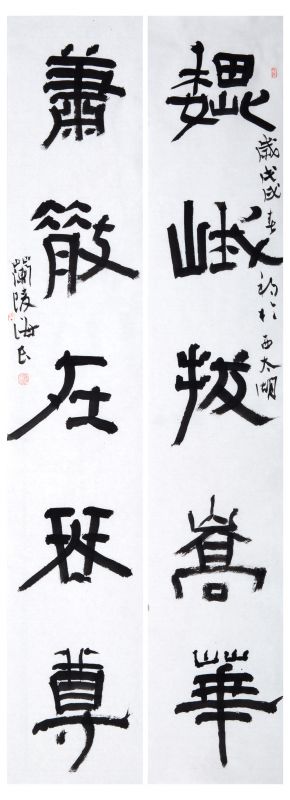 魏峨拔嵩華
歲戊戌春於西太湖
蕭散在琴尊
蘭陵海民